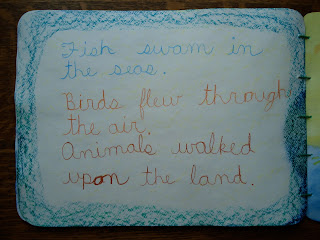 Fish swam in
the seas.
Birds flew through
the air.
Animals walked
upon the land.